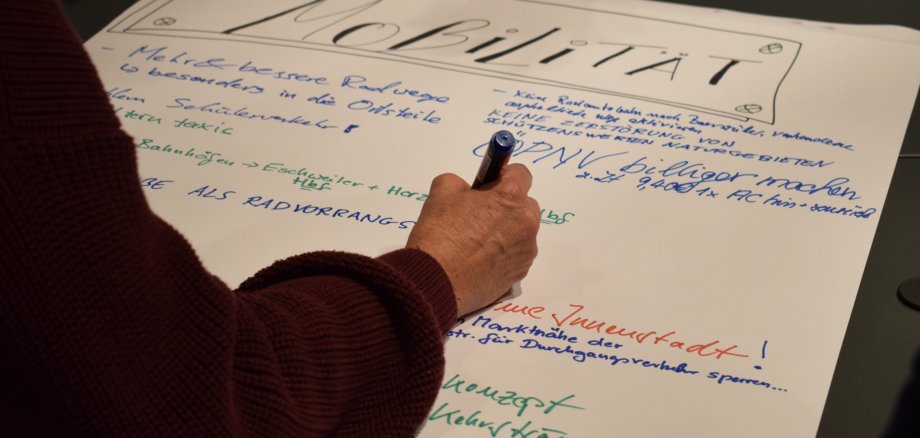 MOBILITÄT
- Mehr & bessere Radwege
↳ besonders in die Ortsteile
Schülerverkehr!
taxis
Bahnhöfen → Eschweiler + Horr
Hbf Hbf
ALS RADVORRANGS
- Keine Radautobahn nach
asphaltierte Wege aktivieren
KEINE ZERSTÖRUNG VON
SCHÜTZENSWERTEN NATURGEBIETEN
ÖPNV billiger machen
z.Zt. 9,40€ 1x AC hin + zurück
Innenstadt!
Marktnähe der
str. für Durchgangsverkehr sperren...
konzept